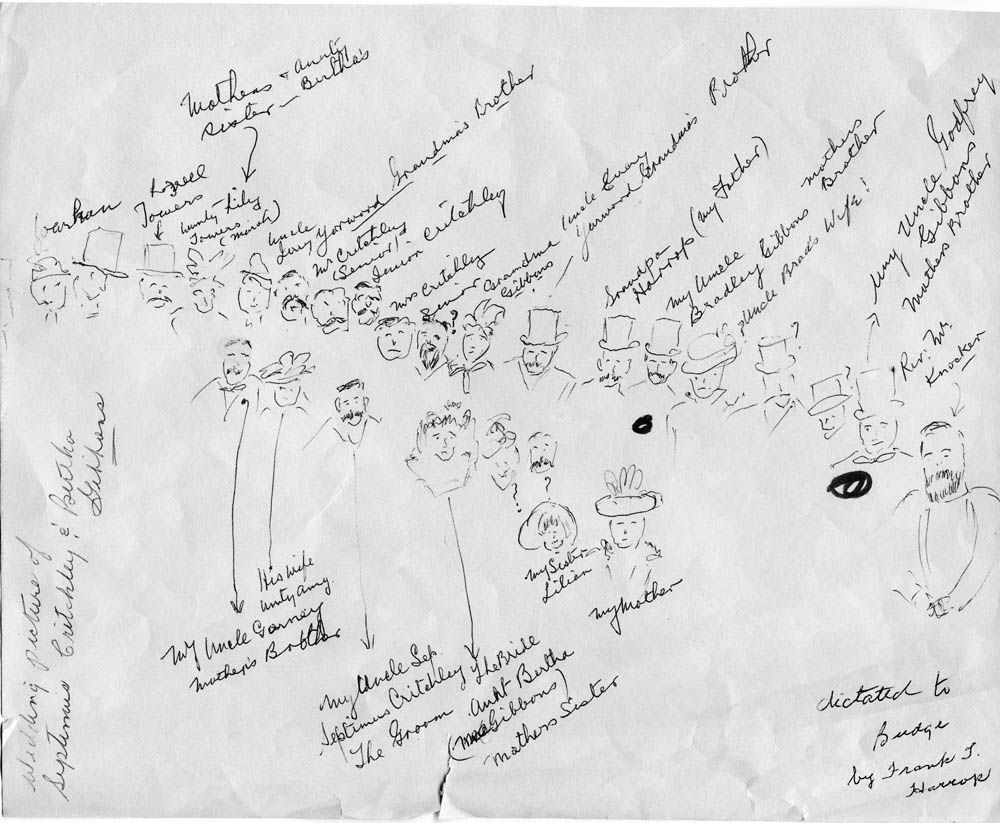 Mothers + aunty
Sister - Bertha's
Lozell
Towers
Aunty Lily
Towers
(Marsh)
Uncle
Larry Yarwood Grandma's Brother
Mr Critchley
(Senior)
Junior Critchley
Mrs Critchley
Senior
?
Grandma
Gibbons
Uncle
Yarwood Grandma's Brother
Grandpa
Harrop (My Father)
My Uncle
Bradley Gibbons mothers
Brother
Uncle Brad's Wife!
?
My Uncle Godfrey
Gibbons
Mothers Brother
Rev: Mr.
Knocker
?
?
My Sister
Lilian
My Mother
His Wife
Aunty Amy.
My Uncle Garney
Mother's Brother
My Uncle Sep.
Septimus Critchley
The Groom
The Bride
Aunt Bertha
(Gibbons)
Mothers Sister
Wedding picture of
Septimus Critchley & Bertha
Gibbons
dictated to
Budge
by Frank T.
Harrop